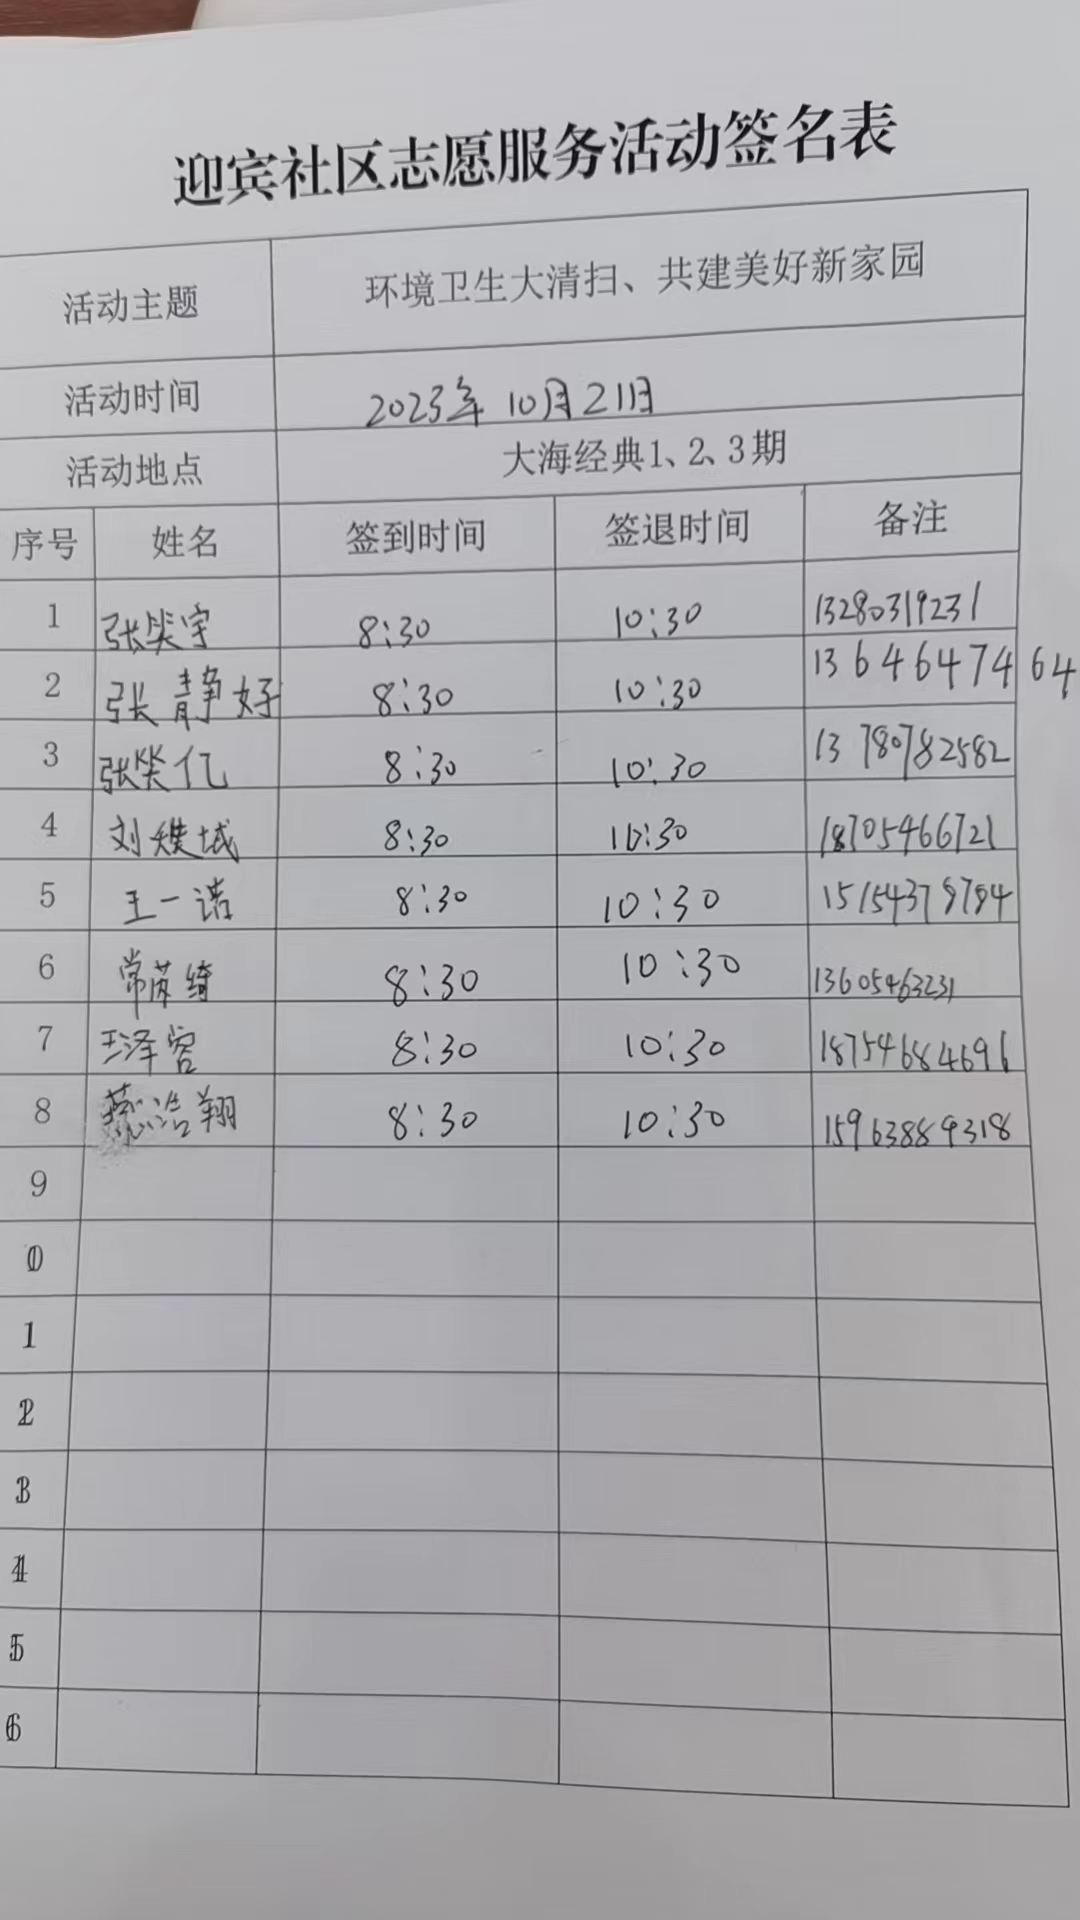 迎宾社区志愿服务活动签名表
活动主题 环境卫生大清扫、共建美好新家园
活动时间 2023年10月21日
活动地点 大海经典1、2、3期
序号 姓名 签到时间 签退时间 备注
1 张笑宇 8:30 10:30 13280319231
2 张静好 8:30 10:30 1364647464
3 张笑亿 8:30 10:30 13780782582
4 刘 8:30 10:30 18705466721
5 王一诺 8:30 10:30
6 常苡绮 8:30 10:30 13605463231
7 王泽容 8:30 10:30 18754684696
8 浩翔 8:30 10:30 15963889318
9
0
1
2
3
4
5
6